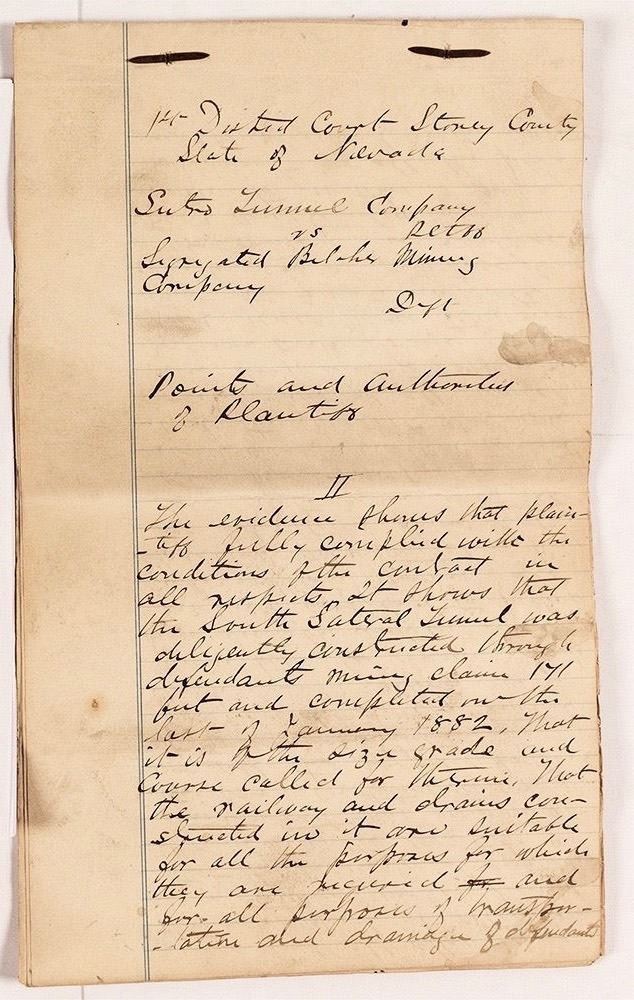 1st Disted Court Storey County
State of Nevada
Sutro Tunnel Company
vs Pltff
Segregated Belcher Mining
Company
Deft
Points and Authorities
of Plantiff
II
The evidence shows that plain-
-tiff fully complied with the
conditions of the contract in
all respects. It shows that
the South Lateral Tunnel was
diligently constructed through
defendants mining claim 171
feet and completed on the
last of January 1882, That
it is of the size grade and
Course called for therein, That
the railway and drains con-
structed in it are suitable
for all the purposes for which
they are required and
for all purposes of transpor-
-tation and drainage of defendants